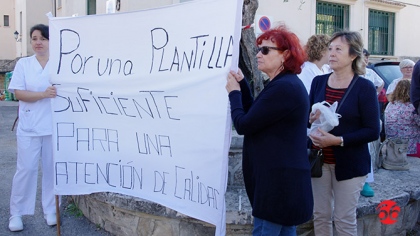 Por una PLANTILLA
SUFICIENTE
PARA UNA
ATENCIÓN DE CALIDAD